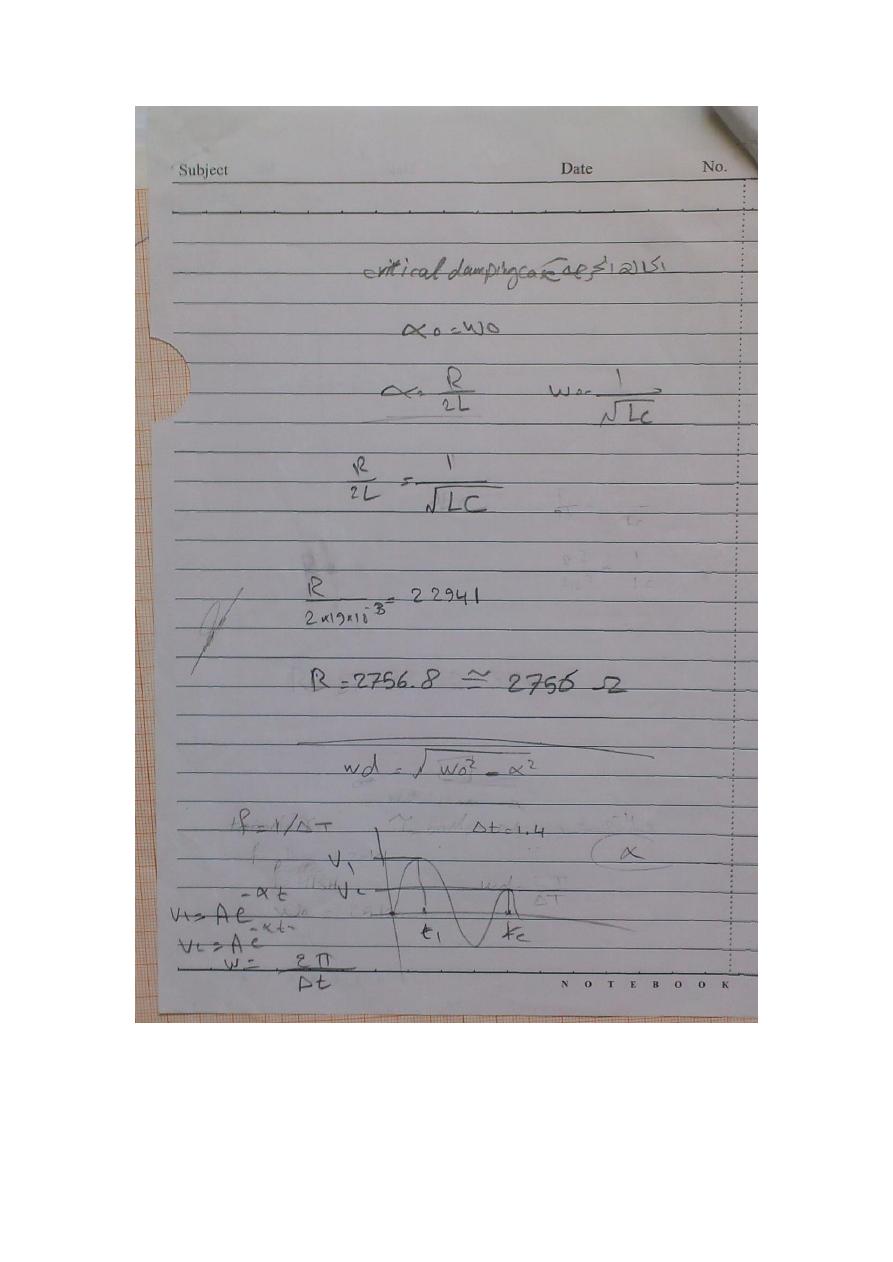 Subject Date No.
critical damping case
α0 = W0
α = R/2L W0 = 1/√LC
R/2L = 1/√LC
R/2×19×10^-3 = 22941
R = 2756.8 ≅ 2756 Ω
wd = √W0² - α²
f = 1/ΔT Δt = 1.4
V1 α
V2
V1 = A e^-αt
t1 t2
V2 = A e^-αt
W = 2π/Δt
NOTEBOOK